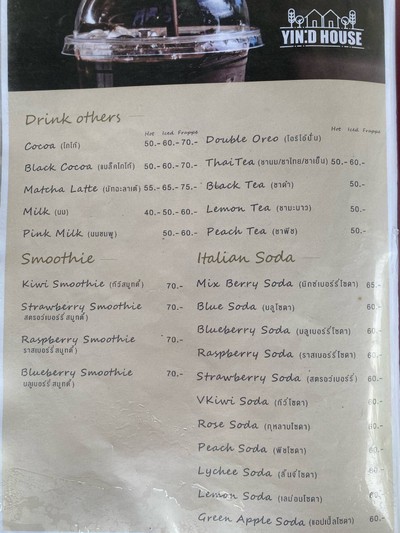 YIN:D HOUSE
Drink others
Hot Iced Frappe
Cocoa (โกโก้) 50.- 60.- 70.-
Black Cocoa (แบล็คโกโก้) 50.- 60.- 70.-
Matcha Latte (มัทฉะลาเต้) 55.- 65.- 75.-
Milk (นม) 40.- 50.- 60.-
Pink Milk (นมชมพู) 50.- 60.-
Hot Iced Frappe
Double Oreo (โอริโอ้ปั่น)
Thai Tea (ชานม/ชาไทย/ชาเย็น) 50.- 60.-
Black Tea (ชาดำ) 50.-
Lemon Tea (ชามะนาว) 50.-
Peach Tea (ชาพีช) 50.-
Smoothie
Kiwi Smoothie (กีวีสมูทตี้) 70.-
Strawberry Smoothie 70.-
สตรอว์เบอร์รี่ สมูทตี้)
Raspberry Smoothie 70.-
ราสเบอร์รี่ สมูทตี้)
Blueberry Smoothie 70.-
บลูเบอร์รี่ สมูทตี้)
Italian Soda
Mix Berry Soda (มิกซ์เบอร์รี่โซดา) 65.-
Blue Soda (บลูโซดา) 60.-
Blueberry Soda (บลูเบอร์รี่โซดา) 60.-
Raspberry Soda (ราสเบอร์รี่โซดา) 60.-
Strawberry Soda (สตรอว์เบอร์รี่) 60.-
VKiwi Soda (กีวี่โซดา) 60.-
Rose Soda (กุหลาบโซดา) 60.-
Peach Soda (พีชโซดา) 60.-
Lychee Soda (ลิ้นจี่โซดา) 60.-
Lemon Soda (เลม่อนโซดา) 60.-
Green Apple Soda (แอปเปิ้ลโซดา) 60.-